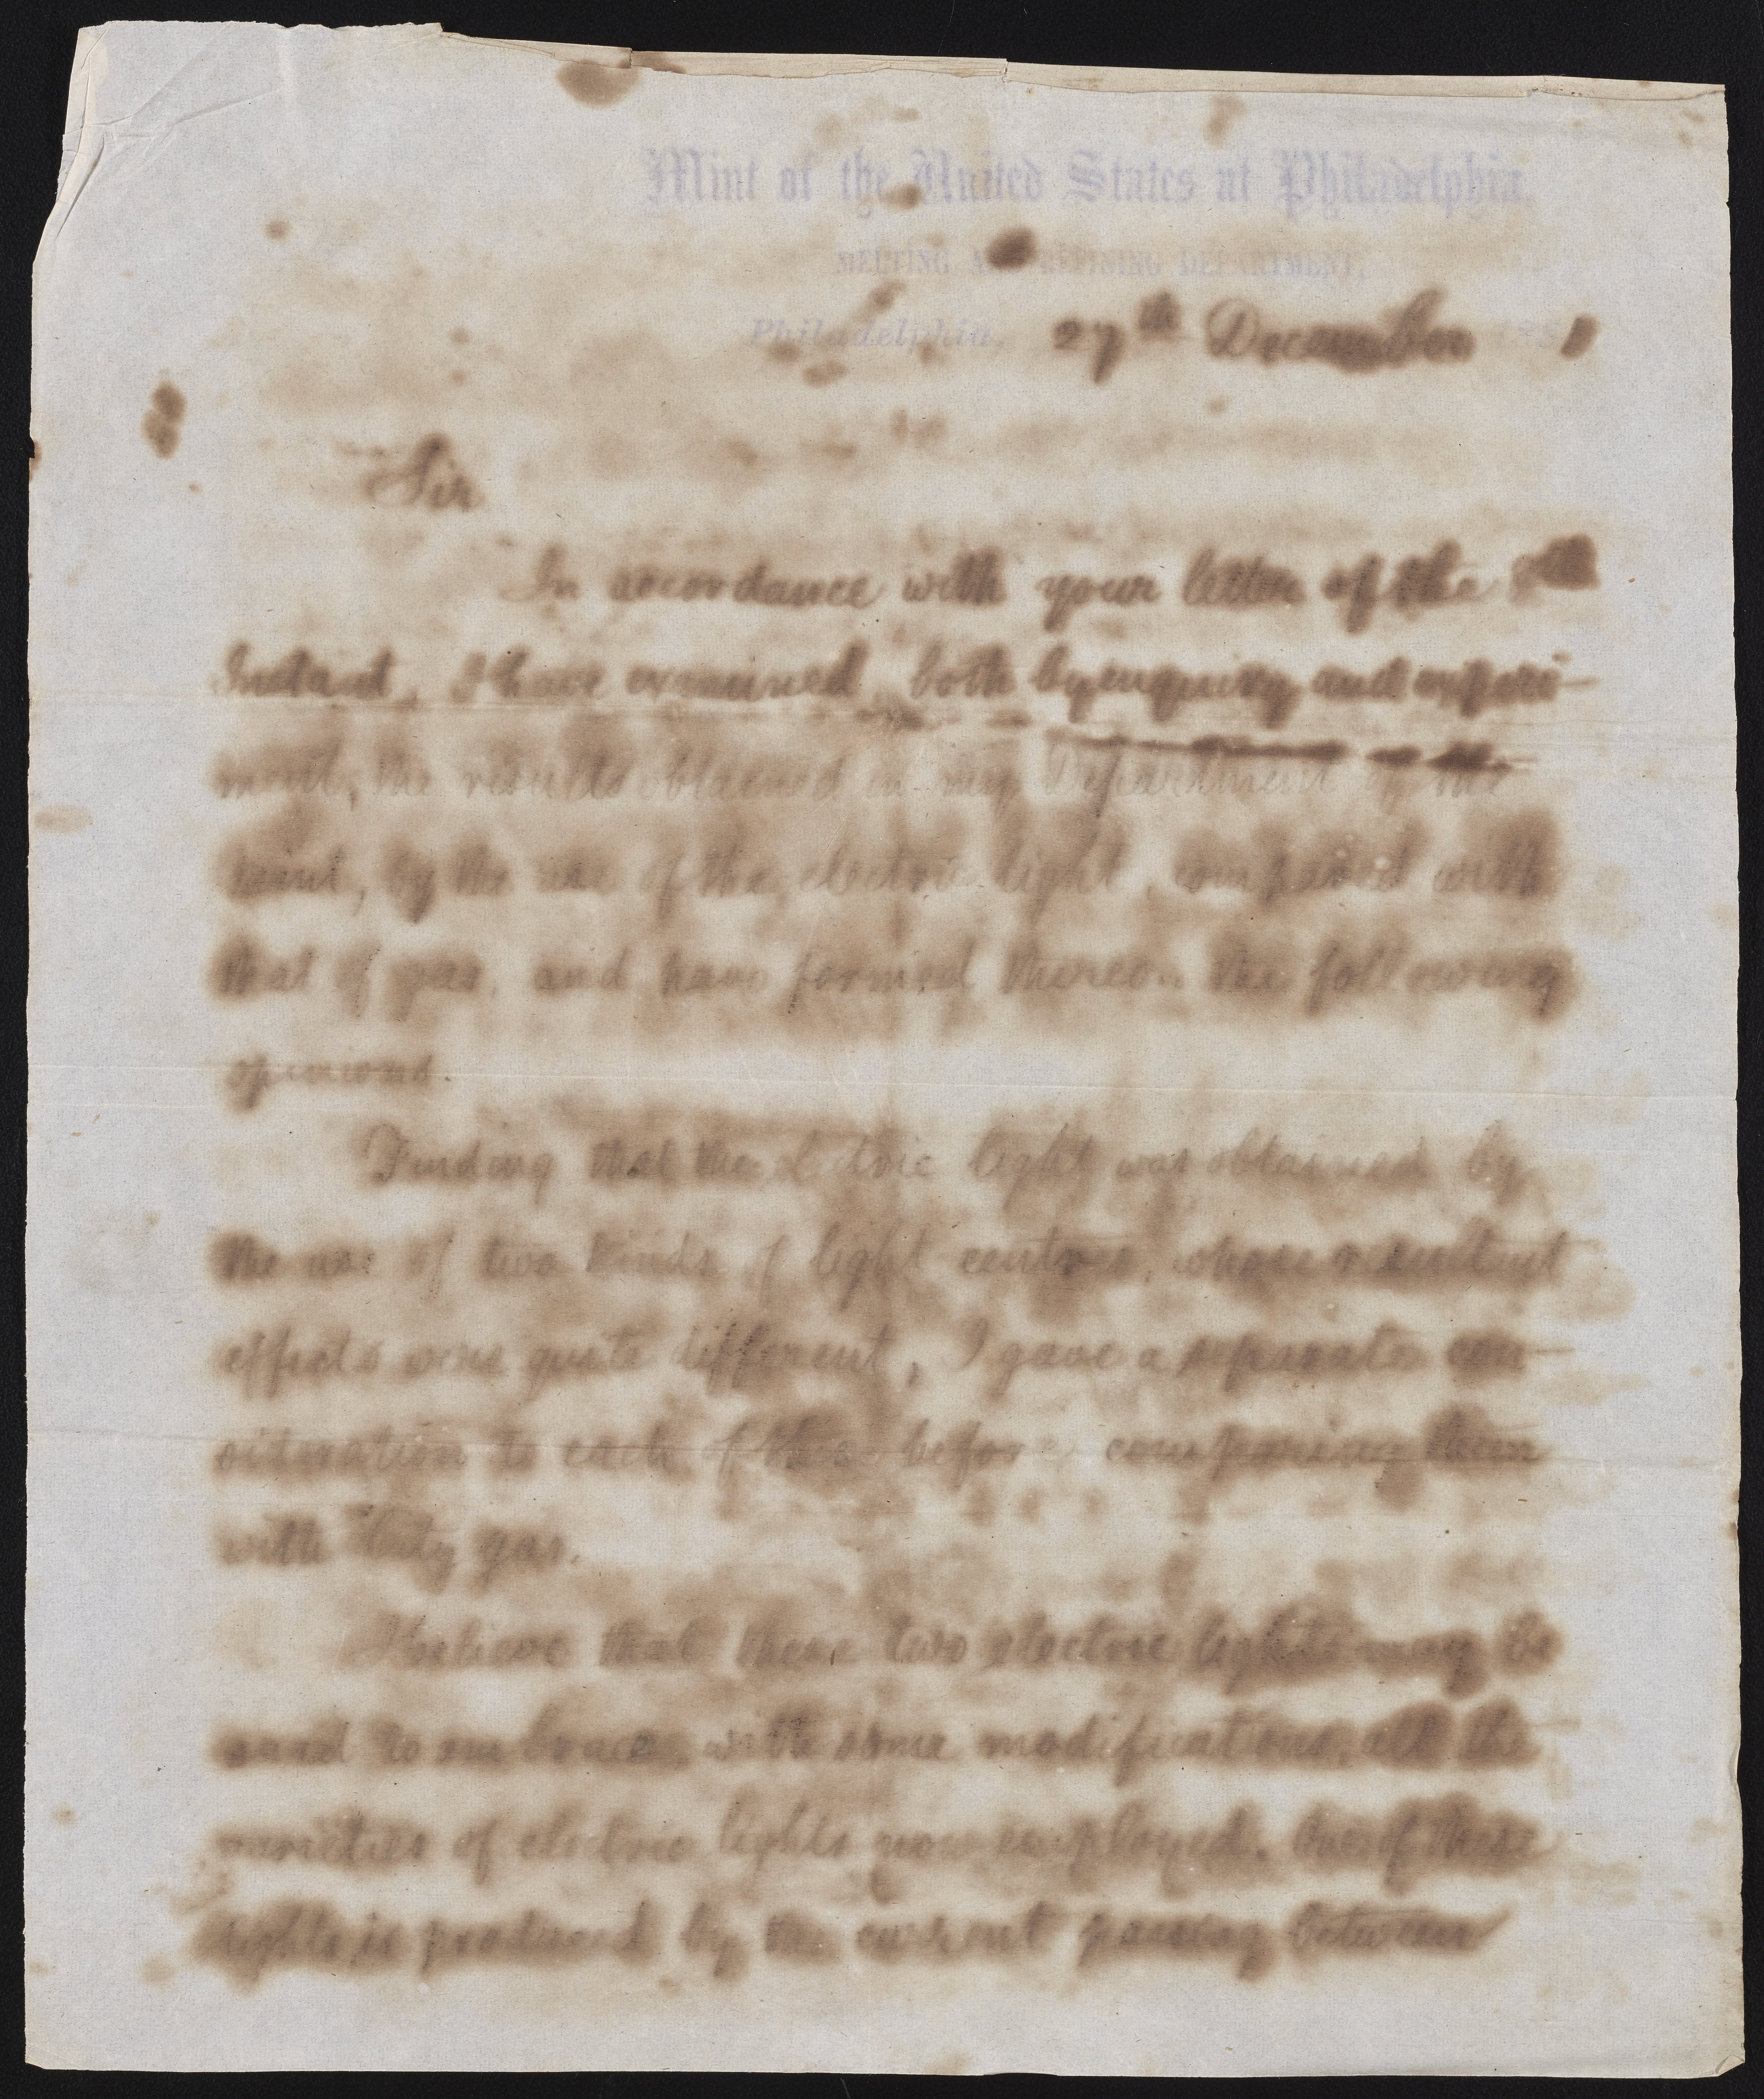 Mint of the United States at Philadelphia.
MELTING AND REFINING DEPARTMENT.
Philadelphia, 27th December 188
Sir
In accordance with your letter of the
Instant, I have examined, both by enquiry and experi-
ment, the results obtained in my Department of the
mint, by the use of the electric light, compared with
that of gas, and have formed thereon the following
opinions.
Finding that the electric light was obtained by
the use of two kinds of light centres, whose resultant
effects were quite different, I gave a separate con-
sideration to each of these before comparing them
with City gas.
I believe that these two electric lights may be
said to embrace, with some modifications, all the
varieties of electric lights now employed. One of these
lights is produced by the current passing between